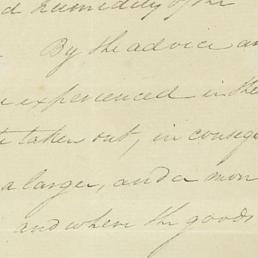 d humidity of the
By the advice an
experienced in the
taken out, in conseq
a larger, and a mon
and where the goods